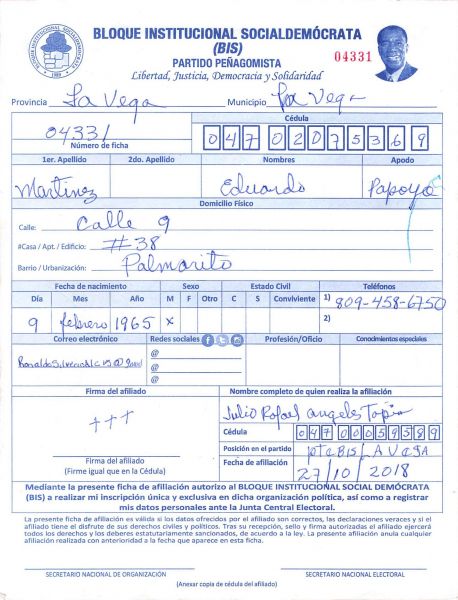 BLOQUE INSTITUCIONAL SOCIALDEMÓCRATA
(BIS)
PARTIDO PEÑAGOMISTA
Libertad, Justicia, Democracia y Solidaridad
04331
Provincia La Vega Municipio La Vega
04331
Número de ficha
Cédula
047 0207536 9
1er. Apellido 2do. Apellido Nombres Apodo
Martinez Eduardo Papoyo
Domicilio Físico
Calle: Calle 9
#Casa / Apt. / Edificio: #38
Barrio / Urbanización: Palmarito
Fecha de nacimiento Sexo Estado Civil Teléfonos
Día Mes Año M F Otro C S Conviviente 1) 809-458-6750
9 febrero 1965 x 2)
Correo electrónico Redes sociales Profesión/Oficio Conocimientos especiales
@
@
@
Firma del afiliado Nombre completo de quien realiza la afiliación
+++ Julio Rafael angeles Tapia
Cédula 047 0005958 9
Posición en el partido pte BIS LA VEGA
Firma del afiliado
(Firme igual que en la Cédula)
Fecha de afiliación 27/10/2018
Mediante la presente ficha de afiliación autorizo al BLOQUE INSTITUCIONAL SOCIAL DEMÓCRATA
(BIS) a realizar mi inscripción única y exclusiva en dicha organización política, así como a registrar
mis datos personales ante la Junta Central Electoral.
La presente ficha de afiliación es válida si los datos ofrecidos por el afiliado son correctos, las declaraciones veraces y si el
afiliado tiene el disfrute de sus derechos civiles y políticos. Tras su recepción, sello y firma autorizadas el afiliado ejercerá
todos los derechos y los deberes estatutariamente sancionados, de acuerdo a la ley. La presente afiliación anula cualquier
afiliación realizada con anterioridad a la fecha que aparece en esta ficha.
SECRETARIO NACIONAL DE ORGANIZACIÓN SECRETARIO NACIONAL ELECTORAL
(Anexar copia de cédula del afiliado)